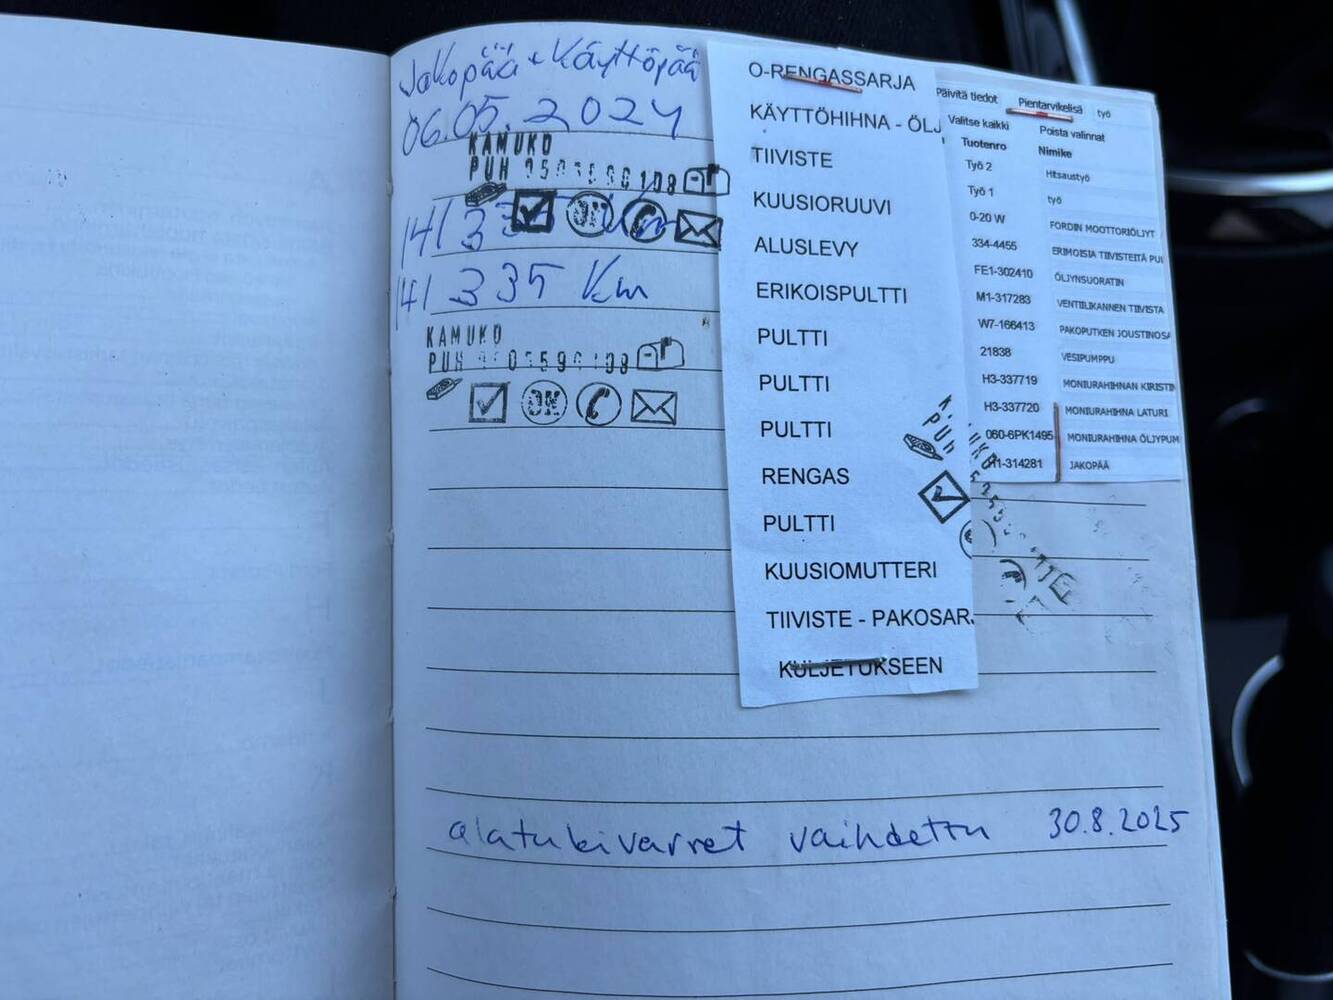 Jakopää + Käyttöpää
06.05.2024
KAMUKO
PUH
141 335 km
141 335 Km
KAMUKO
PUH
OK
O-RENGASSARJA
KÄYTTÖHIHNA - ÖLJ
TIIVISTE
KUUSIORUUVI
ALUSLEVY
ERIKOISPULTTI
PULTTI
PULTTI
PULTTI
RENGAS
PULTTI
KUUSIOMUTTERI
TIIVISTE - PAKOSARJ
KULJETUKSEEN
Päivitä tiedot Pientarvikelisä työ
Valitse kaikki Poista valinnat
Tuotenro Nimike
Työ 2 Hitsaustyö
Työ 1 työ
0-20 W FORDIN MOOTTORIÖLJYT
334-4455 ERIMOISIA TIIVISTEITÄ PUI
FE1-302410 ÖLJYNSUORATIN
M1-317283 VENTIILIKANNEN TIIVISTA
W7-166413 PAKOPUTKEN JOUSTINOSA
21838 VESIPUMPPU
H3-337719 MONIURAHIHNAN KIRISTIN
H3-337720 MONIURAHIHNA LATURI
060-6PK1495 MONIURAHIHNA ÖLJYPUM
H1-314281 JAKOPÄÄ
alatukivarret vaihdettu 30.8.2025